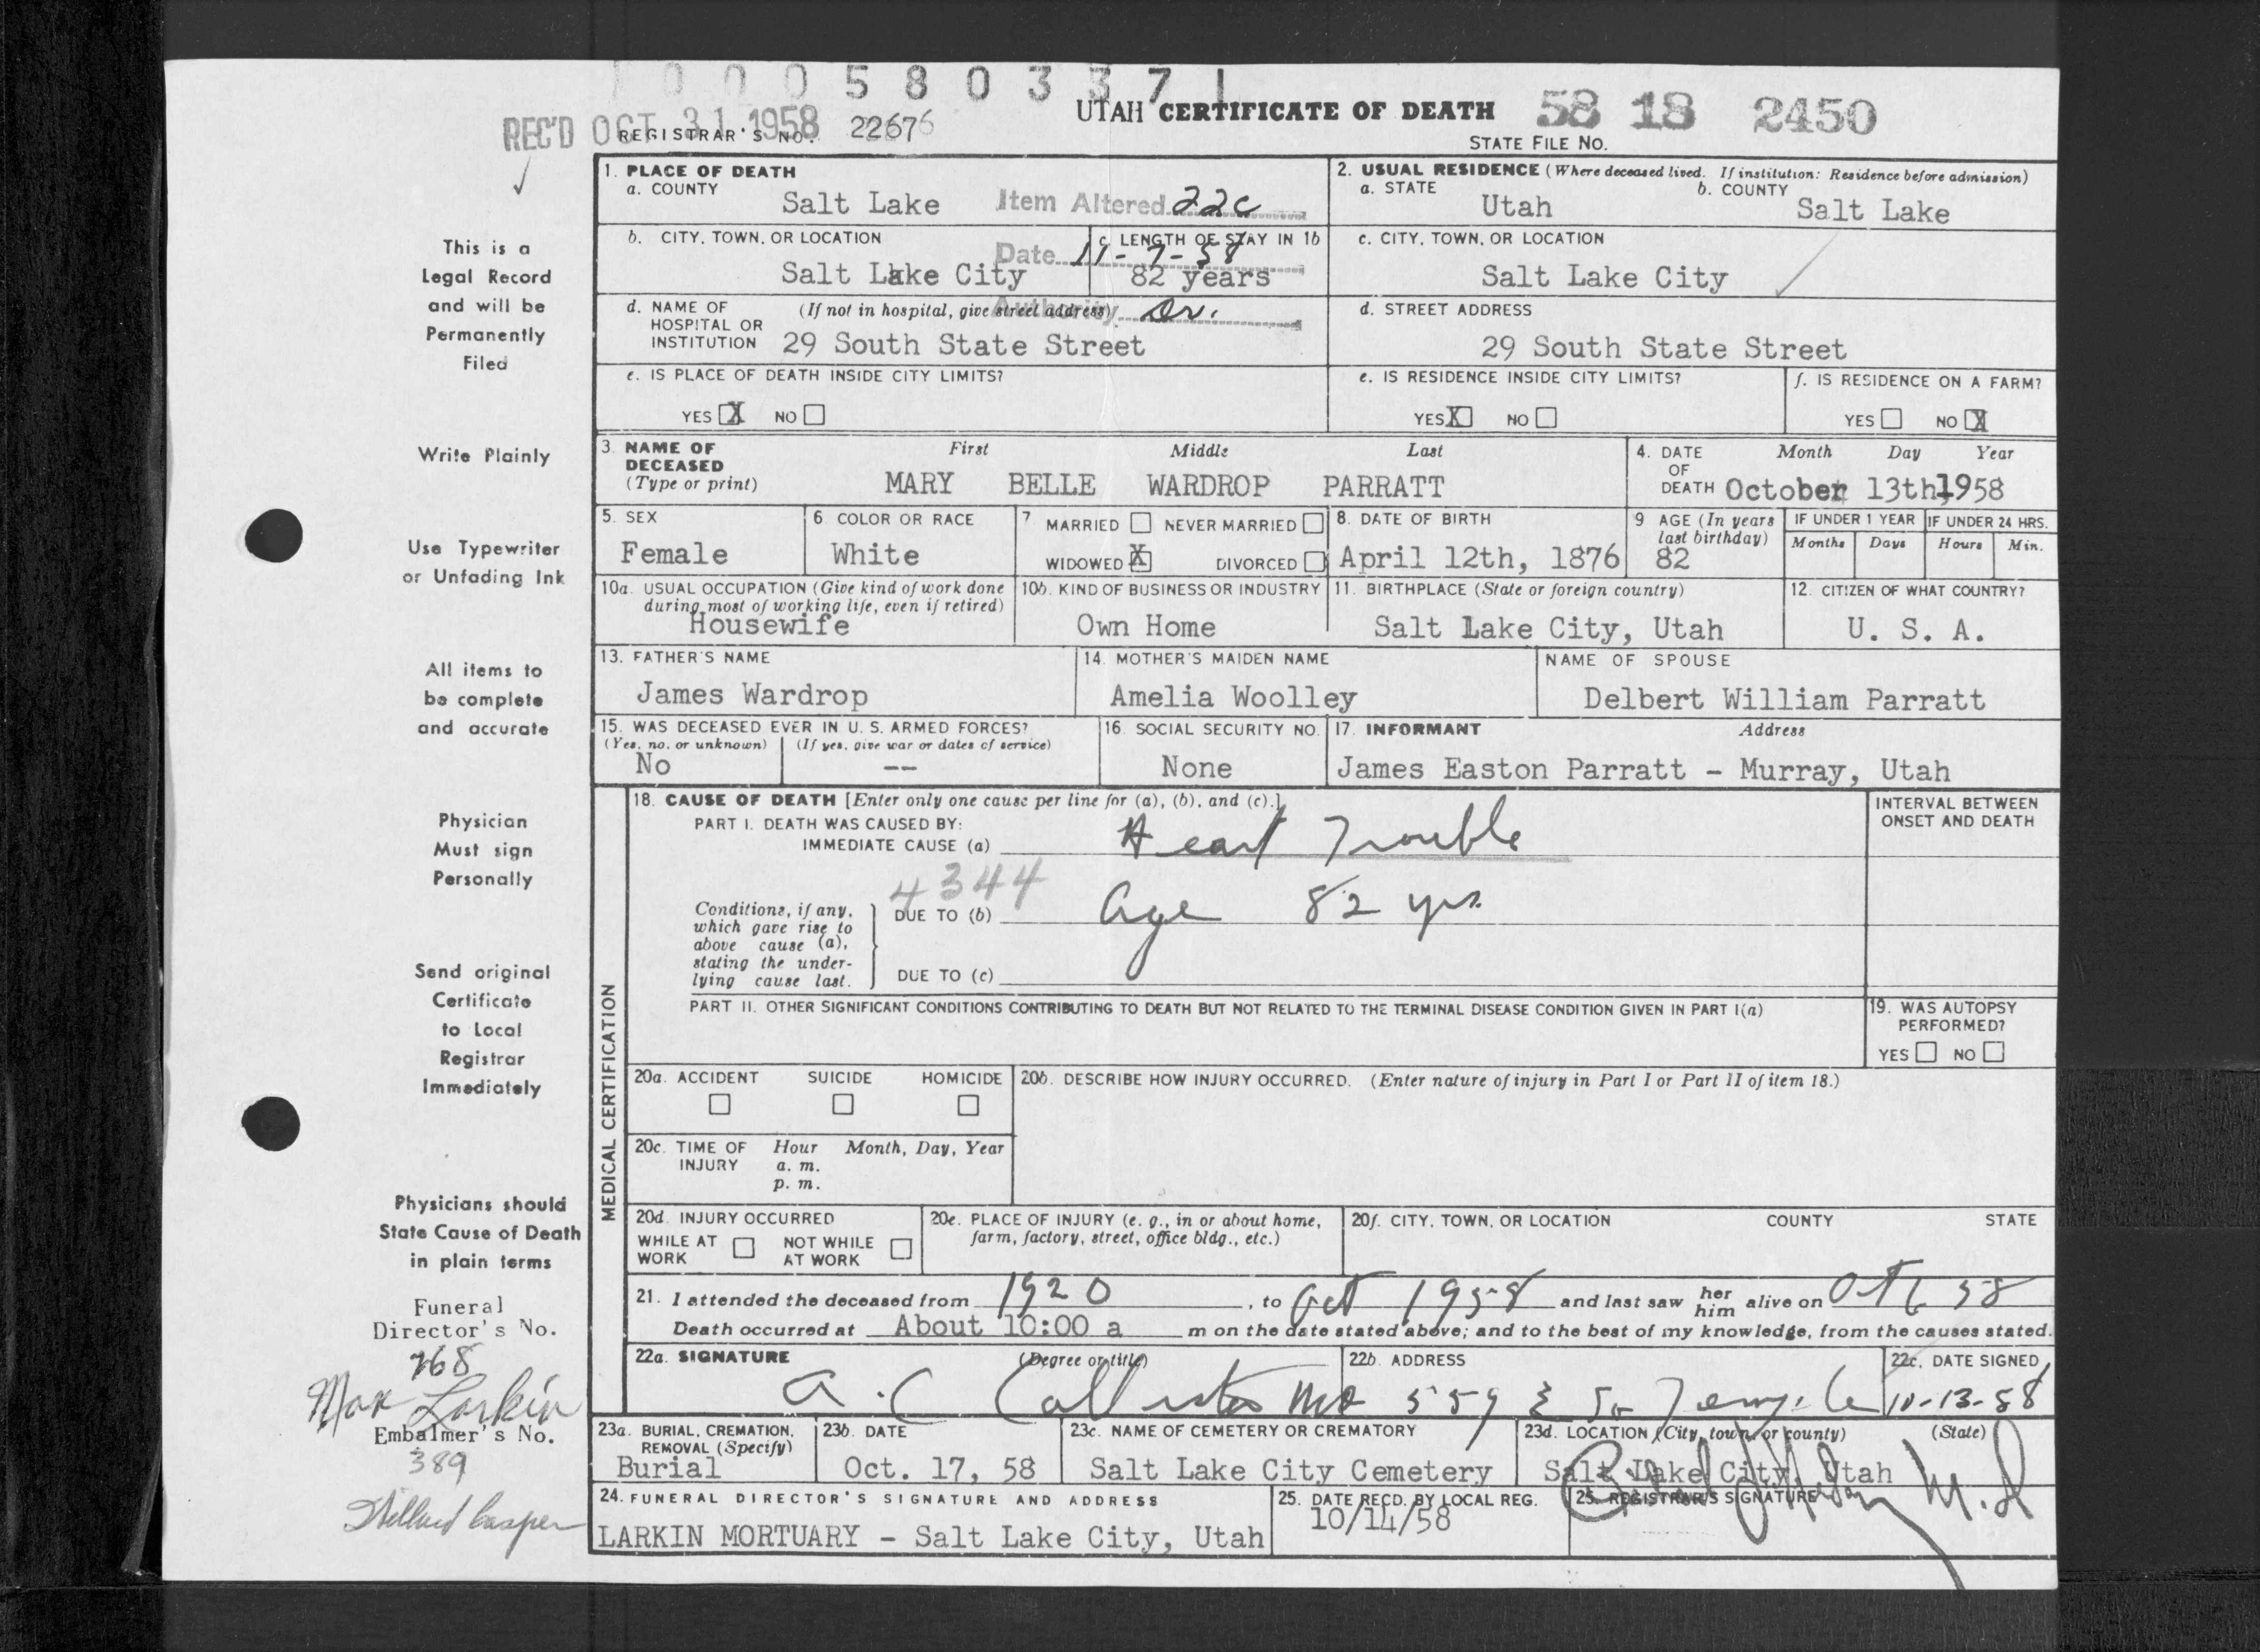 0 0 0 5 8 0 3 3 7 1
REC'D OCT 31 1958
REGISTRAR'S NO. 22676
UTAH CERTIFICATE OF DEATH
58 18 2450
STATE FILE NO.
This is a
Legal Record
and will be
Permanently
Filed
Write Plainly
Use Typewriter
or Unfading Ink
All items to
be complete
and accurate
Physician
Must sign
Personally
Send original
Certificate
to Local
Registrar
Immediately
Physicians should
State Cause of Death
in plain terms
Funeral
Director's No.
768
Max Larkin
Embalmer's No.
389
Willard Casper
1. PLACE OF DEATH
a. COUNTY
Salt Lake
Item Altered 22c
Date 11-7-58
Authority Dr.
b. CITY, TOWN, OR LOCATION
Salt Lake City
c. LENGTH OF STAY IN 1b
82 years
d. NAME OF HOSPITAL OR INSTITUTION
(If not in hospital, give street address)
29 South State Street
e. IS PLACE OF DEATH INSIDE CITY LIMITS?
YES X NO
2. USUAL RESIDENCE (Where deceased lived. If institution: Residence before admission)
a. STATE
Utah
b. COUNTY
Salt Lake
c. CITY, TOWN, OR LOCATION
Salt Lake City
d. STREET ADDRESS
29 South State Street
e. IS RESIDENCE INSIDE CITY LIMITS?
YES X NO
f. IS RESIDENCE ON A FARM?
YES NO X
3. NAME OF DECEASED
(Type or print)
First Middle Last
MARY BELLE WARDROP PARRATT
4. DATE OF DEATH
Month Day Year
October 13th 1958
5. SEX
Female
6 COLOR OR RACE
White
7 MARRIED NEVER MARRIED
WIDOWED X DIVORCED
8. DATE OF BIRTH
April 12th, 1876
9 AGE (In years last birthday)
82
IF UNDER 1 YEAR
Months Days
IF UNDER 24 HRS.
Hours Min.
10a. USUAL OCCUPATION (Give kind of work done during most of working life, even if retired)
Housewife
10b. KIND OF BUSINESS OR INDUSTRY
Own Home
11. BIRTHPLACE (State or foreign country)
Salt Lake City, Utah
12. CITIZEN OF WHAT COUNTRY?
U. S. A.
13. FATHER'S NAME
James Wardrop
14. MOTHER'S MAIDEN NAME
Amelia Woolley
NAME OF SPOUSE
Delbert William Parratt
15. WAS DECEASED EVER IN U. S. ARMED FORCES?
(Yes, no, or unknown) (If yes, give war or dates of service)
No --
16. SOCIAL SECURITY NO.
None
17. INFORMANT Address
James Easton Parratt - Murray, Utah
MEDICAL CERTIFICATION
18. CAUSE OF DEATH [Enter only one cause per line for (a), (b), and (c).]
PART I. DEATH WAS CAUSED BY:
IMMEDIATE CAUSE (a) Heart Trouble
4344
Conditions, if any, which gave rise to above cause (a), stating the underlying cause last.
DUE TO (b) Age 82 yrs.
DUE TO (c)
INTERVAL BETWEEN
ONSET AND DEATH
PART II. OTHER SIGNIFICANT CONDITIONS CONTRIBUTING TO DEATH BUT NOT RELATED TO THE TERMINAL DISEASE CONDITION GIVEN IN PART I(a)
19. WAS AUTOPSY PERFORMED?
YES NO
20a. ACCIDENT SUICIDE HOMICIDE
20b. DESCRIBE HOW INJURY OCCURRED. (Enter nature of injury in Part I or Part II of item 18.)
20c. TIME OF INJURY
Hour Month, Day, Year
a. m.
p. m.
20d. INJURY OCCURRED
WHILE AT WORK NOT WHILE AT WORK
20e. PLACE OF INJURY (e. g., in or about home, farm, factory, street, office bldg., etc.)
20f. CITY, TOWN, OR LOCATION COUNTY STATE
21. I attended the deceased from 1920, to Oct 1958 and last saw her him alive on Oct 6 58
Death occurred at About 10:00 a m on the date stated above; and to the best of my knowledge, from the causes stated.
22a. SIGNATURE (Degree or title)
A. C. Callister MD
22b. ADDRESS
559 E So Temple
22c. DATE SIGNED
10-13-58
23a. BURIAL, CREMATION, REMOVAL (Specify)
Burial
23b. DATE
Oct. 17, 58
23c. NAME OF CEMETERY OR CREMATORY
Salt Lake City Cemetery
23d. LOCATION (City, town, or county) (State)
Salt Lake City, Utah
24. FUNERAL DIRECTOR'S SIGNATURE AND ADDRESS
LARKIN MORTUARY - Salt Lake City, Utah
25. DATE RECD. BY LOCAL REG.
10/14/58
25. REGISTRAR'S SIGNATURE
M.D